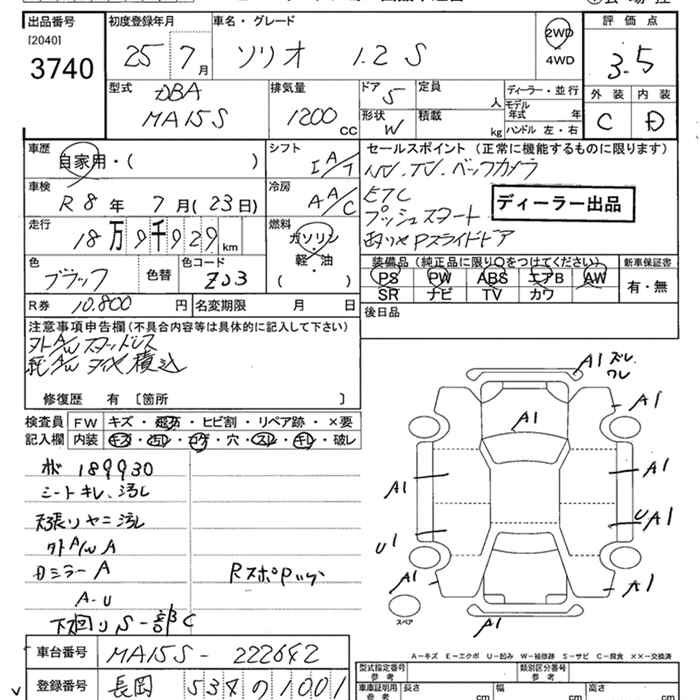 出品番号
[2040]
3740
初度登録年月
25 7月
車名・グレード
ソリオ 1.2 S
2WD
4WD
評価点
3.5
外装 内装
C D
型式
DBA
MA15S
排気量
1200 cc
ドア 5
形状 W
定員 人
積載 kg
ディーラー・並行
モデル年式 年
ハンドル 左・右
車歴
自家用・( )
シフト
IA/T
セールスポイント (正常に機能するものに限ります)
ナビ.TV.バックカメラ
ETC
プッシュスタート
両リヤPスライドドア
ディーラー出品
車検
R8年 7月(23日)
冷房
AA/C
走行
18万9千929km
燃料
ガソリン
軽・油
色
ブラック
色替
色コード
ZJ3
装備品 (純正品に限り○をつけてください)
PS PW ABS エアB AW
SR ナビ TV カワ
新車保証書
有・無
R券 10.800円
名変期限 月 日
後日品
注意事項申告欄(不具合内容等は具体的に記入して下さい)
外A/Wスタッドレス
純A/Wタイヤ積込
修復歴 有 〔箇所 〕
検査員記入欄
FW キズ・飛石・ヒビ割・リペア跡・×要
内装 キズ・汚レ・コゲ・穴・スレ・キレ・破レ
189930
シートキレ.汚レ
天張りヤニ汚レ
外A/W A
ミラーA
A-U
下回りS-部C
A1 ズレ
ワレ
A1
A1
A1
A1
A1
UA1
U1
A1
A1
A1
スペア
A−キズ E−エクボ U−凹み W−補修跡 S−サビ C−腐食 ××−交換済
車台番号
MA15S-222642
登録番号
長岡 534の1001
型式指定番号
参考
類別区分番号
参考
車庫証明用
参考
長さ cm
幅 cm
高さ cm